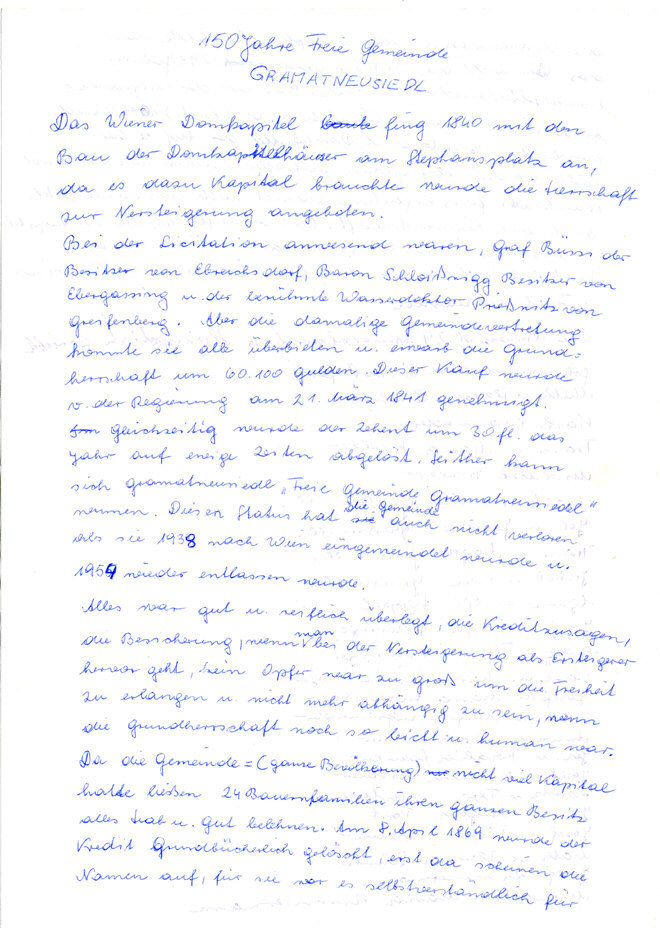 150 Jahre Freie Gemeinde
GRAMATNEUSIEDL
Das Wiener Domkapitel baute fing 1840 mit den
Bau der Domkapitelhäuser am Stephansplatz an,
da es dazu Kapital brauchte wurde die Herrschaft
zur Versteigerung angeboten.
Bei der Licitation anwesend waren, Graf Büssi der
Besitzer von Ebreichsdorf, Baron Schloißnigg Besitzer von
Ebergassing u. der berühmte Wasserdoktor Prießnitz von
Greifenberg. Aber die damalige Gemeindevertretung
konnte sie alle überbieten u. erwarb die Grund=
herrschaft um 60.100 Gulden. Dieser Kauf wurde
v. der Regierung am 21. März 1841 genehmigt.
Gleichzeitig wurde der Zehent um 30 fl. das
Jahr auf ewige Zeiten abgelöst. Seither kann
sich Gramatneusiedl „Freie Gemeinde Gramatneusiedel"
nennen. Diesen Status hat sie die Gemeinde auch nicht verloren
als sie 1938 nach Wien eingemeindet wurde u.
1954 wieder entlassen wurde.
Alles war gut u. reiflich überlegt, die Kreditzusagen,
die Besicherung, wenn man bei der Versteigerung als Ersteigerer
hervor geht, kein Opfer war zu groß um die Freiheit
zu erlangen u. nicht mehr abhängig zu sein, wenn
die Grundherrschaft noch so leicht u. human war.
Da die Gemeinde = (ganze Bevölkerung) nicht viel Kapital
hatte ließen 24 Bauernfamilien ihren ganzen Besitz
alles Hab u. Gut belehnen. Am 8. April 1869 wurde der
Kredit Grundbücherlich gelöscht, erst da scheinen die
Namen auf, für sie war es selbstverständlich für